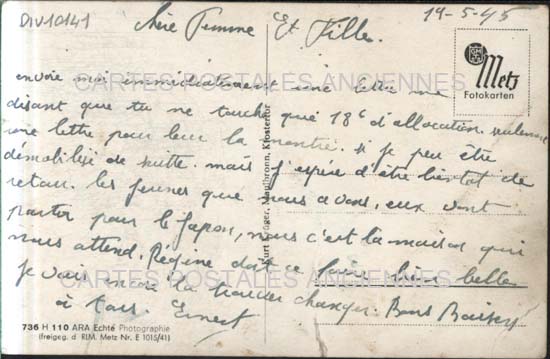 DIV10141
14-5-45
Chère Femme Et Fille.
Metz
Fotokarten
envoie moi immédiatement une lettre me
disant que tu ne touche que 18f d'allocation seulement
une lettre pour leur la montré. si je peu être
démobilisé de suitte. mais j'espère d'être bientot de
retour. les jeunes que nous avons, eux vont
partir pour le Japon, nous c'est la maison qui
nous attend, Régine doit ce faire bien belle
je vais encor la trouver changer. Bons Baisers
à tous. Ernest
CARTES POSTALES ANCIENNES
CARTES POSTALES ANCIENNES
Maulbronn, Klostertor
736 H 110 ARA Echte Photographie
(freigeg. d RLM. Metz Nr. E 1015/41)